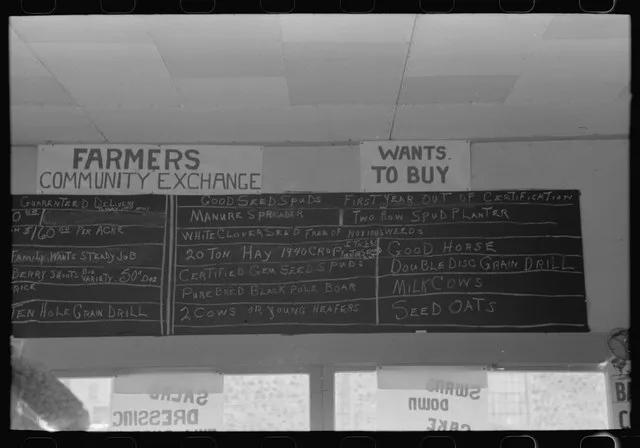 FARMERS
COMMUNITY EXCHANGE
WANTS.
TO BUY
GUARANTEED DELIVERY
PER ACRE
FAMILY WANTS STEADY JOB
BERRY SHOOTS BIG VARIETY. 50¢ DOZ
RICE
TEN HOLE GRAIN DRILL
GOOD SEED SPUDS FIRST YEAR OUT OF CERTIFICATION
MANURE SPREADER TWO ROW SPUD PLANTER
WHITE CLOVER SEED FREE OF NOXINS WEEDS
20 TON HAY 1940 CROP
CERTIFIED GEM SEED SPUDS
PURE BRED BLACK POLE BOAR
2 COWS OR YOUNG HEAFERS
GOOD HORSE
DOUBLE DISC GRAIN DRILL
MILK COWS
SEED OATS
SALAD
DRESSING
SWANS
DOWN
CAKE
BA